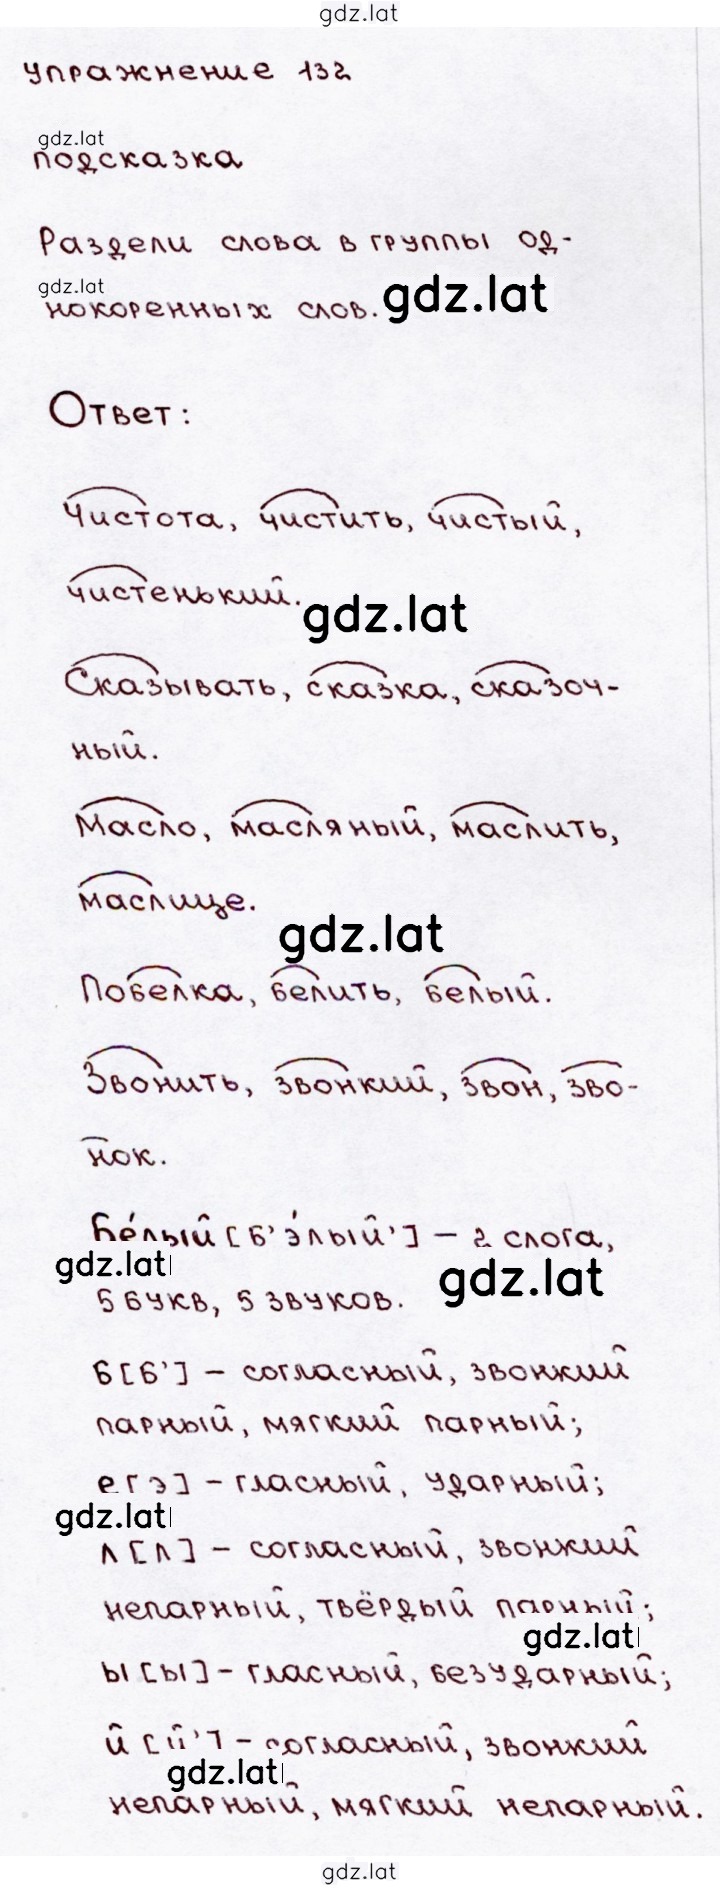 gdz.lat
Упражнение 132
gdz.lat
подсказка
Раздели слова в группы од-
gdz.lat
нокоренных слов. gdz.lat
Ответ:
Чистота, чистить, чистый,
чистенький.
gdz.lat
Сказывать, сказка, сказоч-
ный.
Масло, масляный, маслить,
маслице.
gdz.lat
Побелка, белить, белый.
Звонить, звонкий, звон, зво-
нок.
Бе́лый [б'э́лый'] - 2 слога,
gdz.lat gdz.lat
5 букв, 5 звуков.
б [б'] - согласный, звонкий
парный, мягкий парный;
е [э] - гласный, ударный;
gdz.lat
л [л] - согласный, звонкий
непарный, твёрдый парный;
gdz.lat
ы [ы] - гласный, безударный;
й [й'] - согласный, звонкий
gdz.lat
непарный, мягкий непарный.
gdz.lat